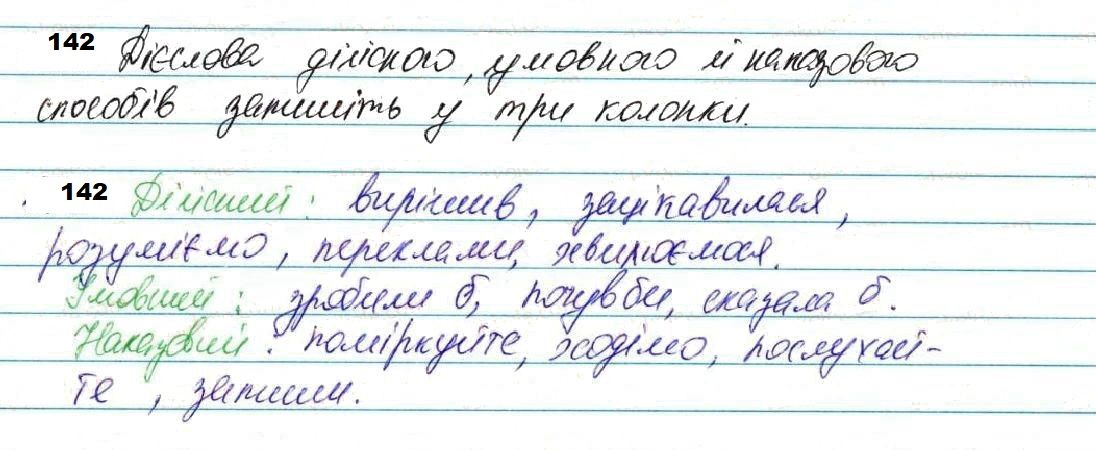 142 Дієслова дійсного, умовного й наказового
способів запишіть у три колонки.
142 Дійсний: вирішив, зацікавилася,
розуміємо, переклали, хвилюємося.
Умовний: зробили б, почув би, сказала б.
Наказовий: поміркуйте, ходімо, послухай-
те, запиши.